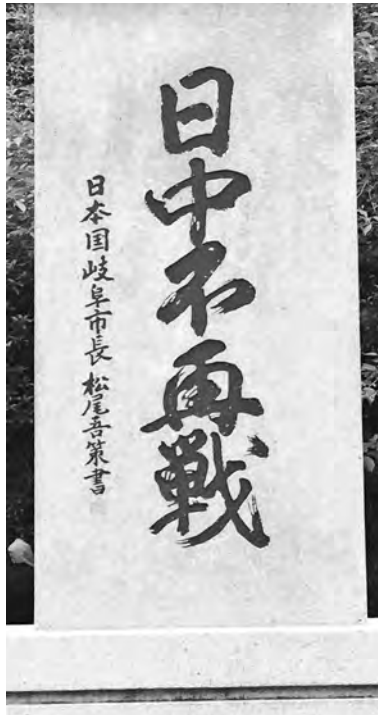 日中不再戦
日本国岐阜市長 松尾吾策書